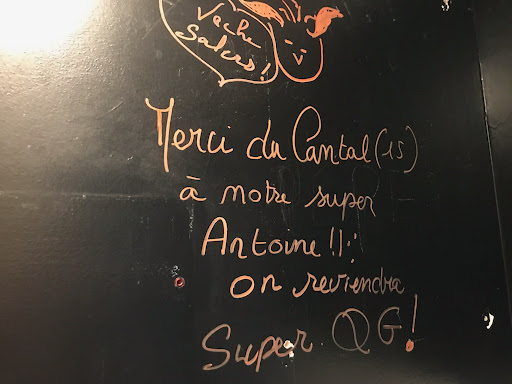 Vache
Salers !
Merci du Cantal (15)
à notre super
Antoine !!
on reviendra
Super QG !